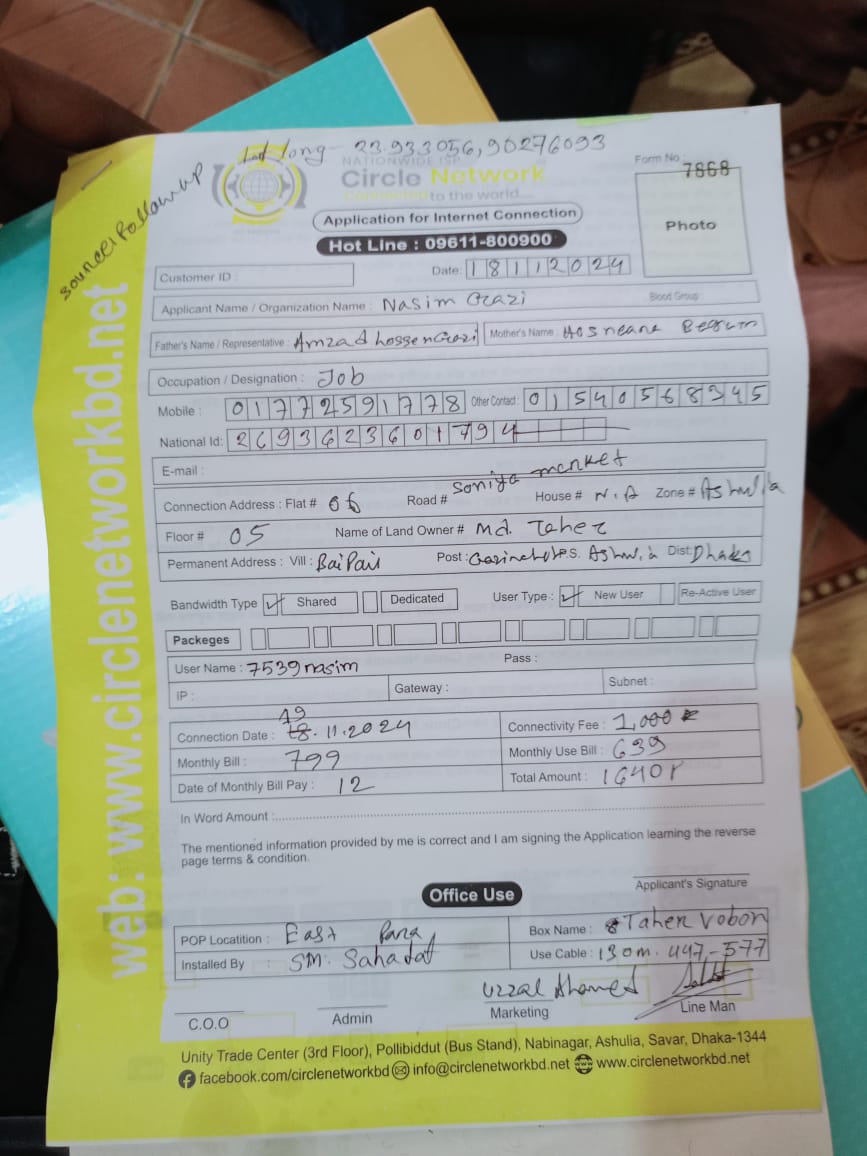 Lat long - 23.933056, 90276093
source follow up
NATIONWIDE ISP
Circle Network
to the world....
Form No : 7868
Photo
Application for Internet Connection
Hot Line : 09611-800900
Customer ID :
Date: 18112024
Applicant Name / Organization Name : Nasim Gazi
Blood Group
Father's Name / Representative : Amzad hossen Gazi
Mother's Name : Hosneane Begum
Occupation / Designation : Job
Mobile : 01772591778
Other Contact : 01540568345
National Id: 2693623601794
E-mail :
Connection Address : Flat # 06 Road # Soniya market House # N.A Zone # Ashulia
Floor # 05 Name of Land Owner # Md. Taher
Permanent Address : Vill : BaiPail Post : P.S. Ashulia Dist: Dhaka
Bandwidth Type Shared Dedicated User Type : New User Re-Active User
Packeges
User Name : 7539nasim Pass :
IP : Gateway : Subnet :
19
Connection Date : 18.11.2024 Connectivity Fee : 1,000
Monthly Bill : 799 Monthly Use Bill : 639
Date of Monthly Bill Pay : 12 Total Amount : 1640
In Word Amount :
The mentioned information provided by me is correct and I am signing the Application learning the reverse
page terms & condition.
Applicant's Signature
Office Use
POP Locatition : East Para Box Name : Taher Vobon
Installed By : SM. Sahadat Use Cable : 130m. 447-577
Uzzal Ahamed
C.O.O Admin Marketing Line Man
Unity Trade Center (3rd Floor), Pollibiddut (Bus Stand), Nabinagar, Ashulia, Savar, Dhaka-1344
facebook.com/circlenetworkbd info@circlenetworkbd.net www.circlenetworkbd.net
web: www.circlenetworkbd.net